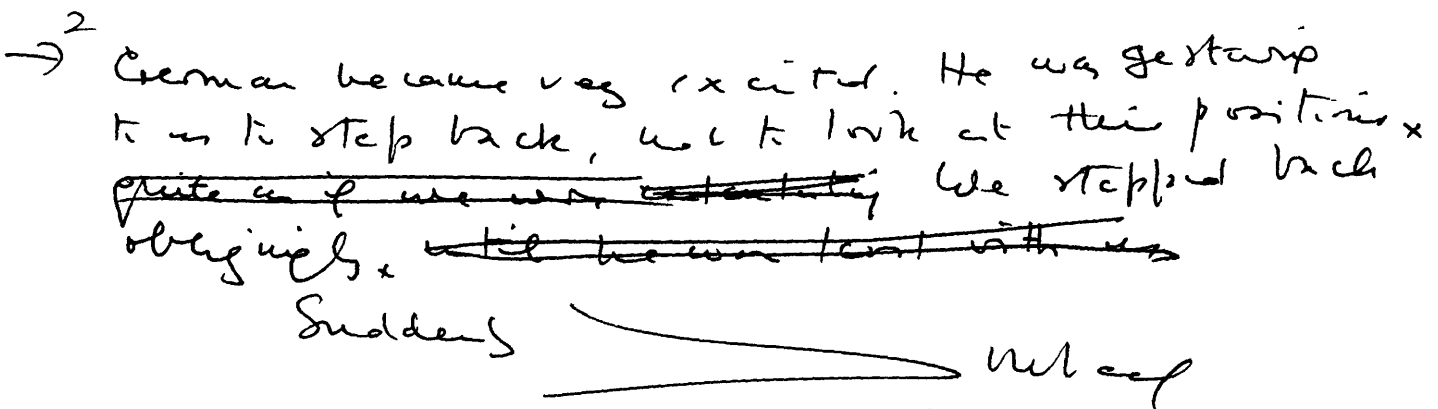 → 2
German became very excited. He was gesturing
to us to step back, not to look at their positions x
quite as if we were We stepped back
obligingly. x until he was lost with us
Suddenly